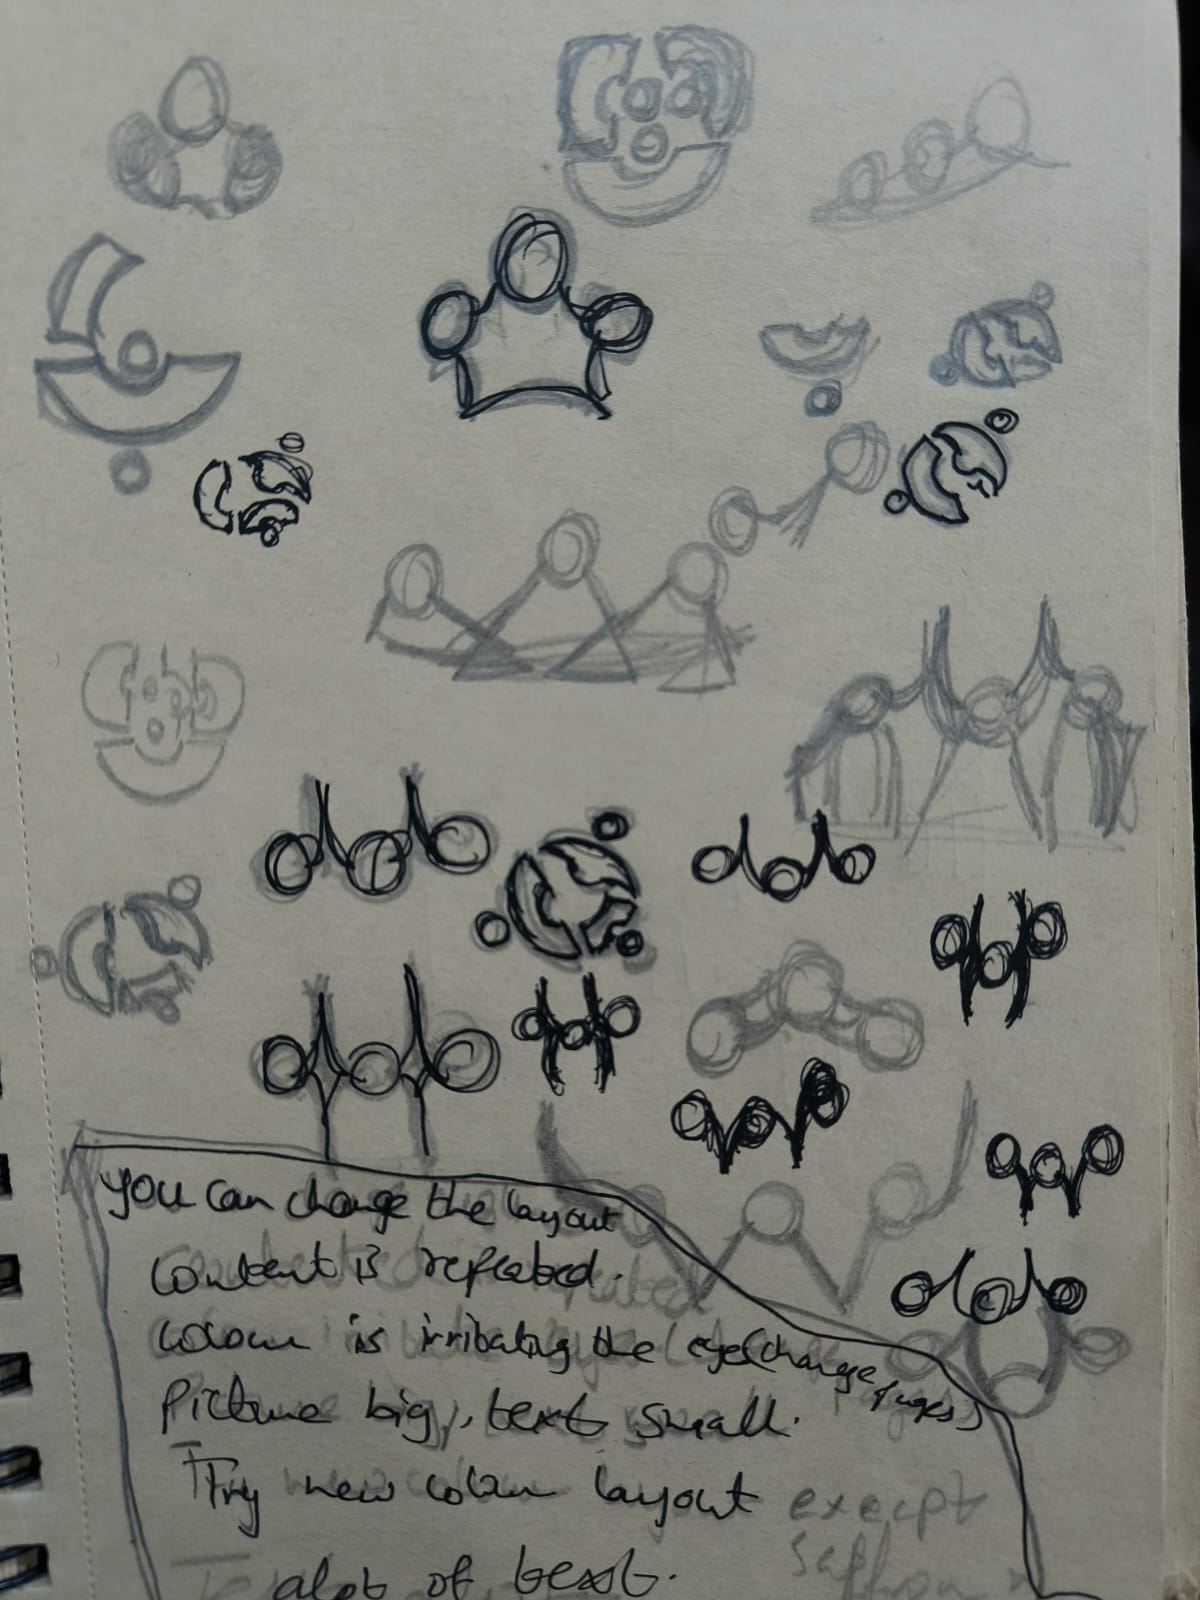 you can change the layout
Content is repeated.
Colour is irritating the eye (change pages)
Picture big, text small.
Try new colour layout except
alot of text.